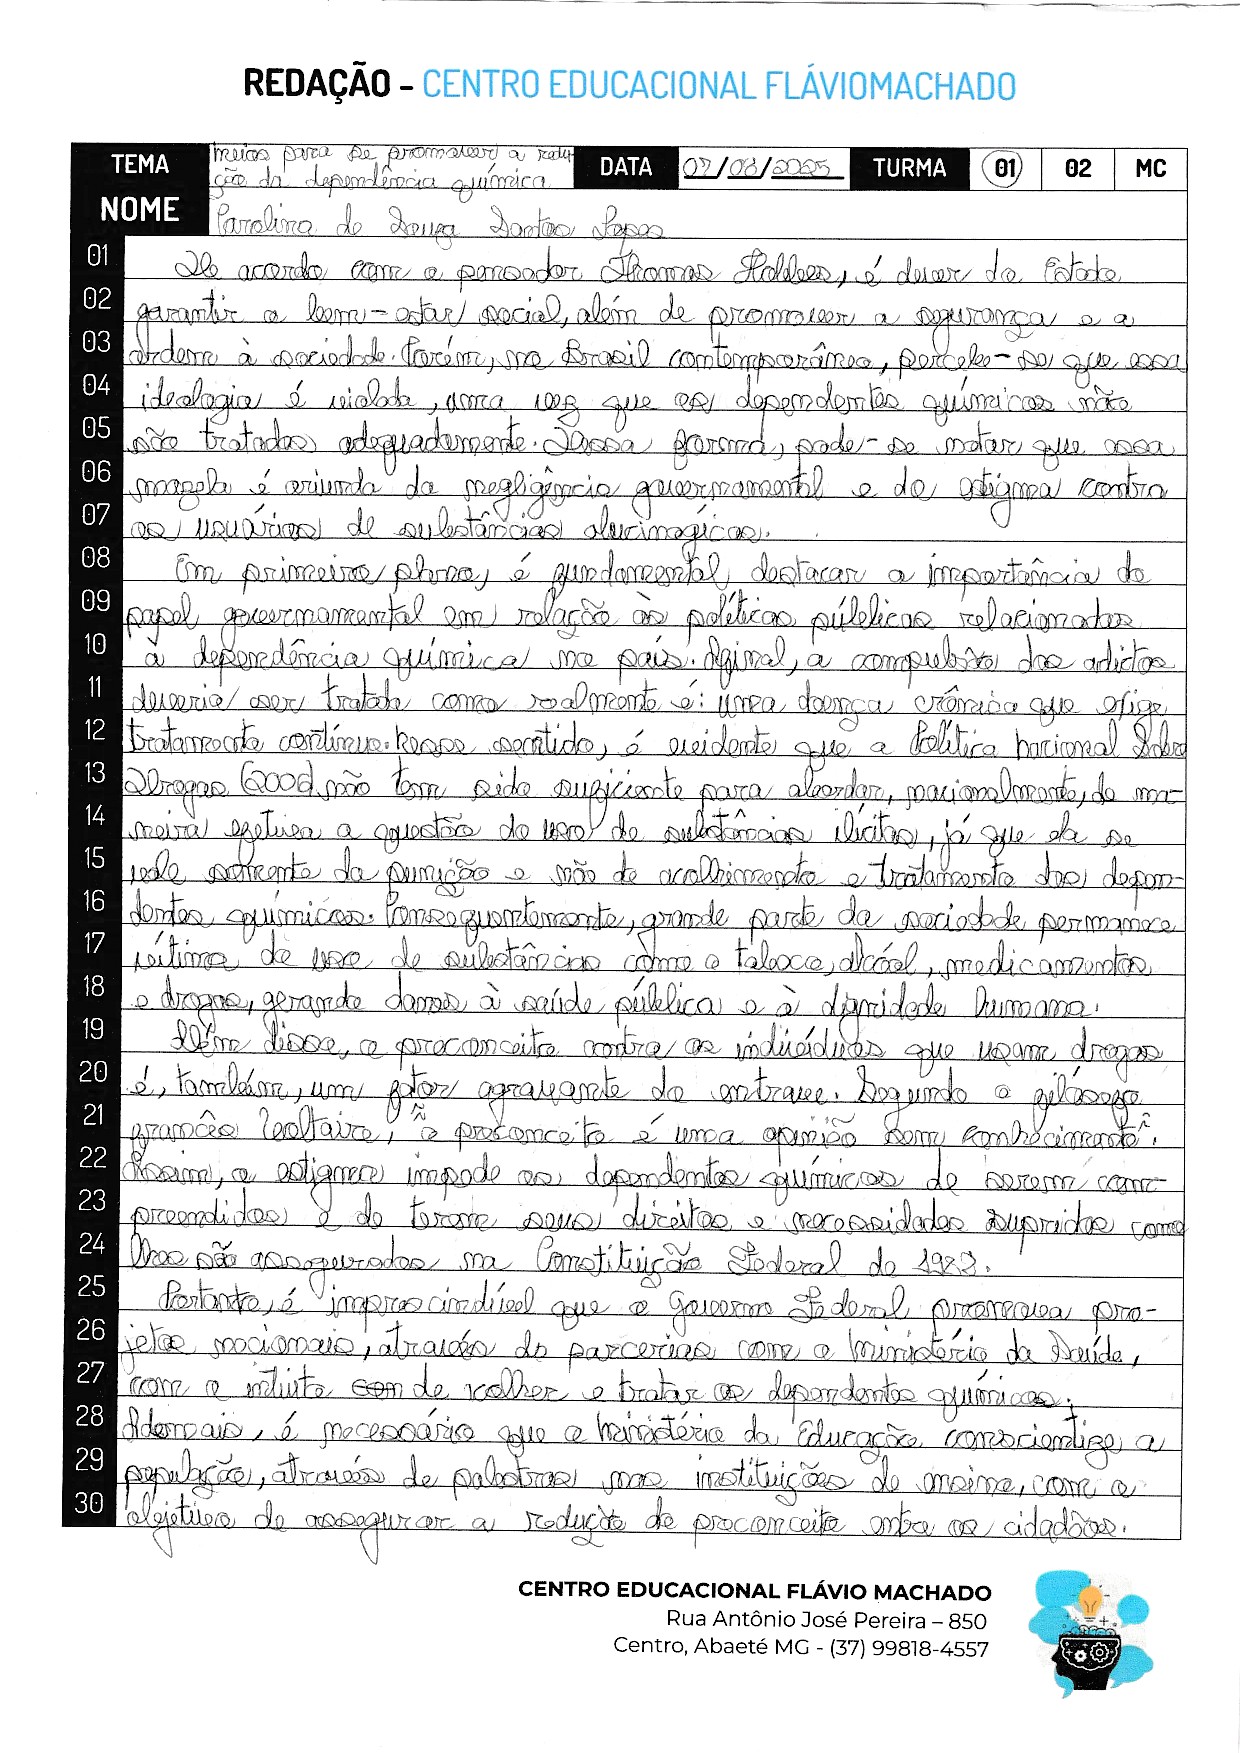 REDAÇÃO - CENTRO EDUCACIONAL FLÁVIOMACHADO
TEMA meios para se promover a redu-
ção da dependência química
DATA 07/08/2025 TURMA 01 02 MC
NOME Carolina de Souza Santos Lopes
01 De acordo com o pensador Thomas Hobbes, é dever do Estado
02 garantir o bem-estar social, além de promover a segurança e a
03 ordem à sociedade. Porém, no Brasil contemporâneo, percebe-se que essa
04 ideologia é violada, uma vez que os dependentes químicos não
05 são tratados adequadamente. Dessa forma, pode-se notar que essa
06 mazela é oriunda da negligência governamental e do estigma contra
07 os usuários de substâncias alucinógicas.
08 Em primeiro plano, é fundamental, destacar a importância do
09 papel governamental em relação às políticas públicas relacionadas
10 à dependência química no país. Afinal, a compulsão dos adictos
11 deveria ser tratada como realmente é: uma doença crônica que exige
12 tratamento contínuo. Nesse sentido, é evidente que a Política Nacional Sobre
13 Drogas (2006) não tem sido suficiente para abordar, nacionalmente, de ma-
14 neira efetiva a questão do uso de substâncias ilícitas, já que ela se
15 vale somente da punição e não do acolhimento e tratamento dos depen-
16 dentes químicos. Consequentemente, grande parte da sociedade permanece
17 vítima do uso de substâncias como o tabaco, álcool, medicamentos
18 e drogas, gerando danos à saúde pública e à dignidade humana.
19 Além disso, o preconceito contra os indivíduos que usam drogas
20 é, também, um fator agravante do entrave. Segundo o filósofo
21 francês Voltaire, "o preconceito é uma opinião sem conhecimento".
22 Assim, o estigma impede os dependentes químicos de serem com-
23 preendidos e de terem seus direitos e necessidades supridos como
24 lhes são assegurados na Constituição Federal de 1988.
25 Portanto, é imprescindível que o Governo Federal promova pro-
26 jetos nacionais, através de parcerias com o Ministério da Saúde,
27 com o intuito com de acolher e tratar os dependentes químicos.
28 Ademais, é necessário que o Ministério da Educação conscientize a
29 população, através de palestras nas instituições de ensino, com o
30 objetivo de assegurar a redução do preconceito entre os cidadãos.
CENTRO EDUCACIONAL FLÁVIO MACHADO
Rua Antônio José Pereira – 850
Centro, Abaeté MG - (37) 99818-4557